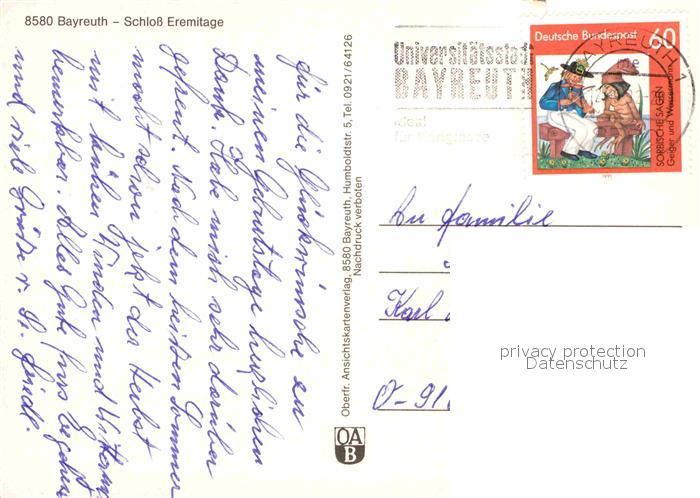 8580 Bayreuth – Schloß Eremitage
für die Glückwünsche zu
meinem Geburtstage herzlichen
Dank. Habe mich sehr darüber
gefreut. Nach dem heißen Sommer
macht schon jetzt der Herbst
mit kühlen Winden und
bemerkbar. Alles Gute
und viele Grüße v.
Oberfr. Ansichtskartenverlag, 8580 Bayreuth, Humboldtstr. 5, Tel. 0921/64126
Nachdruck verboten
OA
B
Universitätsstadt
BAYREUTH
ideal
für Kongresse
BAYREUTH 1
Deutsche Bundespost
60
SORBISCHE SAGEN
Geiger und Wassermann
1991
An Familie
Karl
O-91
privacy protection
Datenschutz